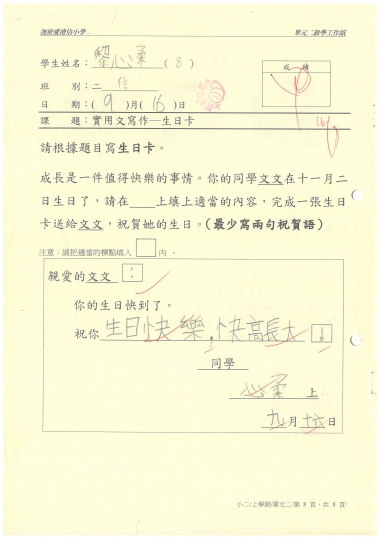 迦密愛禮信小學
單元二教學工作紙
學生姓名：黎心柔（8）
成績
班 別：二信
日 期：（9）月（16）日
課 題：實用文寫作—生日卡
請根據題目寫生日卡。
成長是一件值得快樂的事情。你的同學文文在十一月二
日生日了，請在____上填上適當的內容，完成一張生日
卡送給文文，祝賀她的生日。（最少寫兩句祝賀語）
注意：請把適當的標點填入□內。
親愛的文文：
你的生日快到了。
祝你生日快樂，快高長大！
同學
心柔 上
九月十六日
小二/上學期/單元二/第 8 頁，共 8 頁/